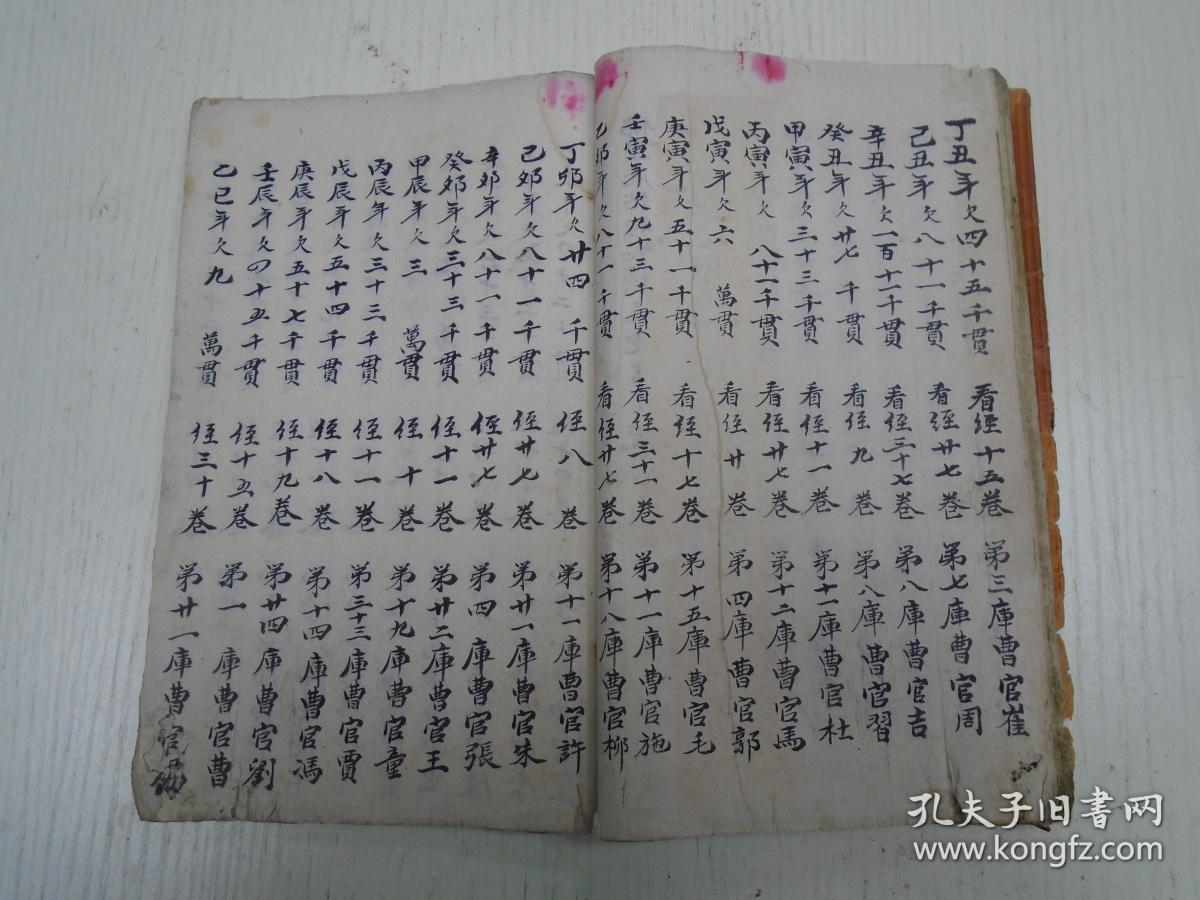 丁丑年欠四十五千貫 看经十五卷 第三庫曹官崔
己丑年欠八十一千貫 看经廿七卷 第七庫曹官周
辛丑年欠一百十一千貫 看经三十七卷 第八庫曹官吉
癸丑年欠廿七千貫 看经九卷 第八庫曹官習
甲寅年欠三十三千貫 看经十一卷 第十一庫曹官杜
丙寅年欠八十一千貫 看经廿七卷 第十二庫曹官馬
戊寅年欠六萬貫 看经廿卷 第四庫曹官郭
庚寅年欠五十一千貫 看经十七卷 第十五庫曹官毛
壬寅年欠九十三千貫 看经三十一卷 第十一庫曹官施
乙卯年欠八十一千貫 看经廿七卷 第十八庫曹官柳
丁卯年欠廿四千貫 经八卷 第十一庫曹官許
己卯年欠八十一千貫 经廿七卷 第廿一庫曹官朱
辛卯年欠八十一千貫 经廿七卷 第四庫曹官張
癸卯年欠三十三千貫 经十一卷 第廿二庫曹官王
甲辰年欠三萬貫 经十卷 第十九庫曹官童
丙辰年欠三十三千貫 经十一卷 第三十三庫曹官賈
戊辰年欠五十四千貫 经十八卷 第十四庫曹官馮
庚辰年欠五十七千貫 经十九卷 第廿四庫曹官劉
壬辰年欠四十五千貫 经十五卷 第一庫曹官曹
乙巳年欠九萬貫 经三十卷 第廿一庫曹官
孔夫子旧书网
www.kongfz.com